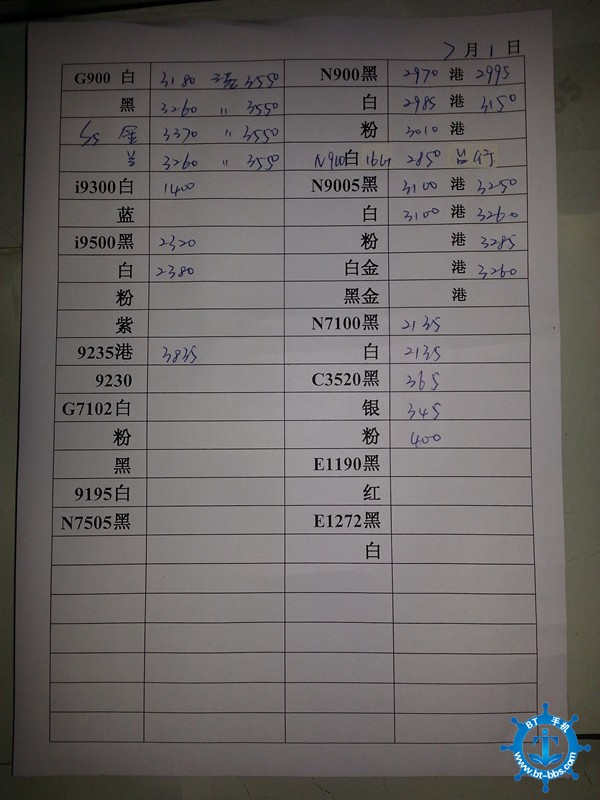 7月1日
G900 白 3180 3550 N900黑 2970 港 2995
黑 3260 〃 3550 白 2985 港 3150
S5 金 3370 〃 3550 粉 3010 港
兰 3260 〃 3550 N900白16G 2850 台行
i9300白 1400 N9005黑 3100 港 3250
蓝 白 3100 港 3260
i9500黑 2320 粉 港 3285
白 2380 白金 港 3260
粉 黑金 港
紫 N7100黑 2135
9235港 3835 白 2135
9230 C3520黑 365
G7102白 银 345
粉 粉 400
黑 E1190黑
9195白 红
N7505黑 E1272黑
白
BT 手机
www.bt-bbs.com